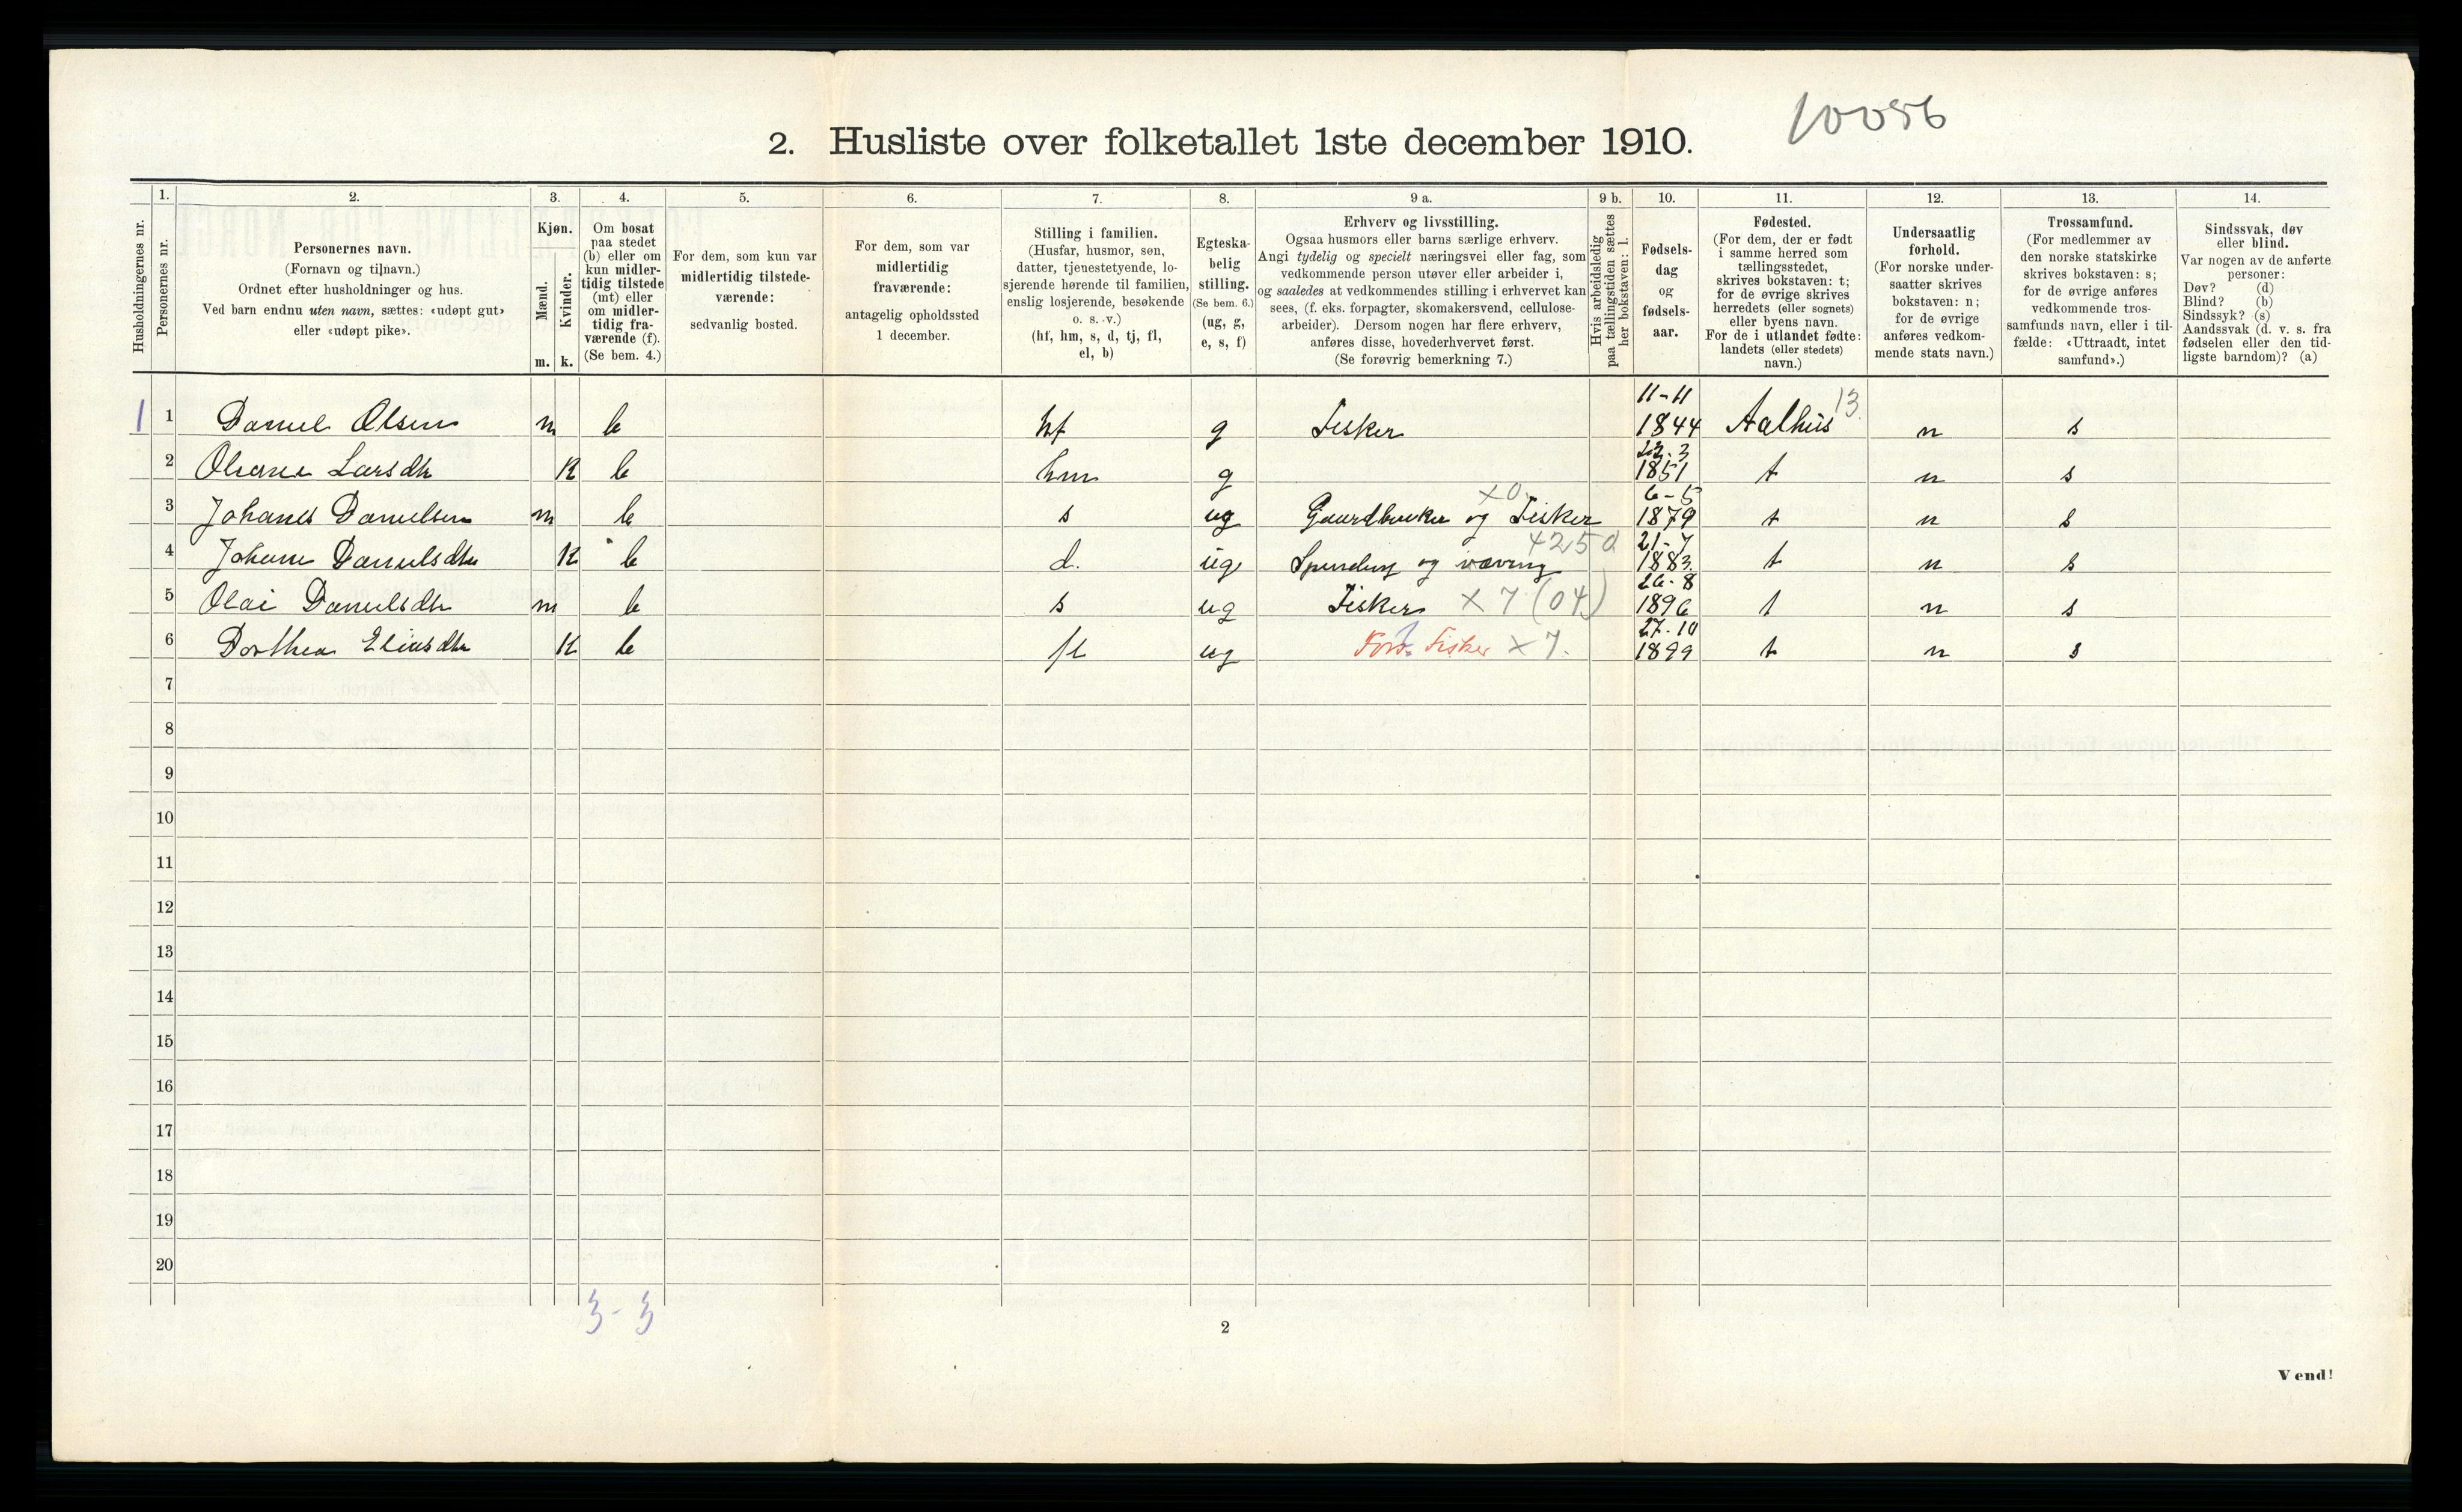 10056
2. Husliste over folketallet 1ste december 1910.
Husholdningernes nr.
1.
Personernes nr.
2.
Personernes navn.
(Fornavn og tilnavn.)
Ordnet efter husholdninger og hus.
Ved barn endnu uten navn, sættes: «udøpt gut»
eller «udøpt pike».
3.
Kjøn.
Mænd.
Kvinder.
m.
k.
4.
Om bosat
paa stedet
(b) eller om
kun midler-
tidig tilstede
(mt) eller
om midler-
tidig fra-
værende (f).
(Se bem. 4.)
5.
For dem, som kun var
midlertidig tilstede-
værende:
sedvanlig bosted.
6.
For dem, som var
midlertidig
fraværende:
antagelig opholdssted
1 december.
7.
Stilling i familien.
(Husfar, husmor, søn,
datter, tjenestetyende, lo-
sjerende hørende til familien,
enslig losjerende, besøkende
o. s. v.)
(hf, hm, s, d, tj, fl,
el, b)
8.
Egteska-
belig
stilling.
(Se bem. 6.)
(ug, g,
e, s, f)
9 a.
Erhverv og livsstilling.
Ogsaa husmors eller barns særlige erhverv.
Angi tydelig og specielt næringsvei eller fag, som
vedkommende person utøver eller arbeider i,
og saaledes at vedkommendes stilling i erhvervet kan
sees, (f. eks. forpagter, skomakersvend, cellulose-
arbeider). Dersom nogen har flere erhverv,
anføres disse, hovederhvervet først.
(Se forøvrig bemerkning 7.)
9 b.
Hvis arbeidsledig
paa tællingstiden sættes
her bokstaven: l.
10.
Fødsels-
dag
og
fødsels-
aar.
11.
Fødested.
(For dem, der er født
i samme herred som
tællingsstedet,
skrives bokstaven: t;
for de øvrige skrives
herredets (eller sognets)
eller byens navn.
For de i utlandet fødte:
landets (eller stedets)
navn.)
12.
Undersaatlig
forhold.
(For norske under-
saatter skrives
bokstaven: n;
for de øvrige
anføres vedkom-
mende stats navn.)
13.
Trossamfund.
(For medlemmer av
den norske statskirke
skrives bokstaven: s;
for de øvrige anføres
vedkommende tros-
samfunds navn, eller i til-
fælde: «Uttraadt, intet
samfund».)
14.
Sindssvak, døv
eller blind.
Var nogen av de anførte
personer:
Døv? (d)
Blind? (b)
Sindssyk? (s)
Aandssvak (d. v. s. fra
fødselen eller den tid-
ligste barndom)? (a)
1 1 Daniel Olsen m b hf g Fisker 11-11 1844 Aalhus 13. n s
2 Oliane Larsdtr k b hm g 22.3 1851 t n s
3 Johanes Danielsen m b s ug Gaardbruker og Fisker x0. 6-5 1879 t n s
4 Johane Danielsdtr k b d. ug Spinding og væving 4250 21-7 1883. t n s
5 Olai Danielsdtr m b s ug Fisker x7 (04) 26-8 1896 t n s
6 Dorthea Eliasdtr k b fl ug Fors. Fisker x7. 27.10 1899 t n s
7
8
9
10
11
12
13
14
15
16
17
18
19
20
3-3
2
Vend!